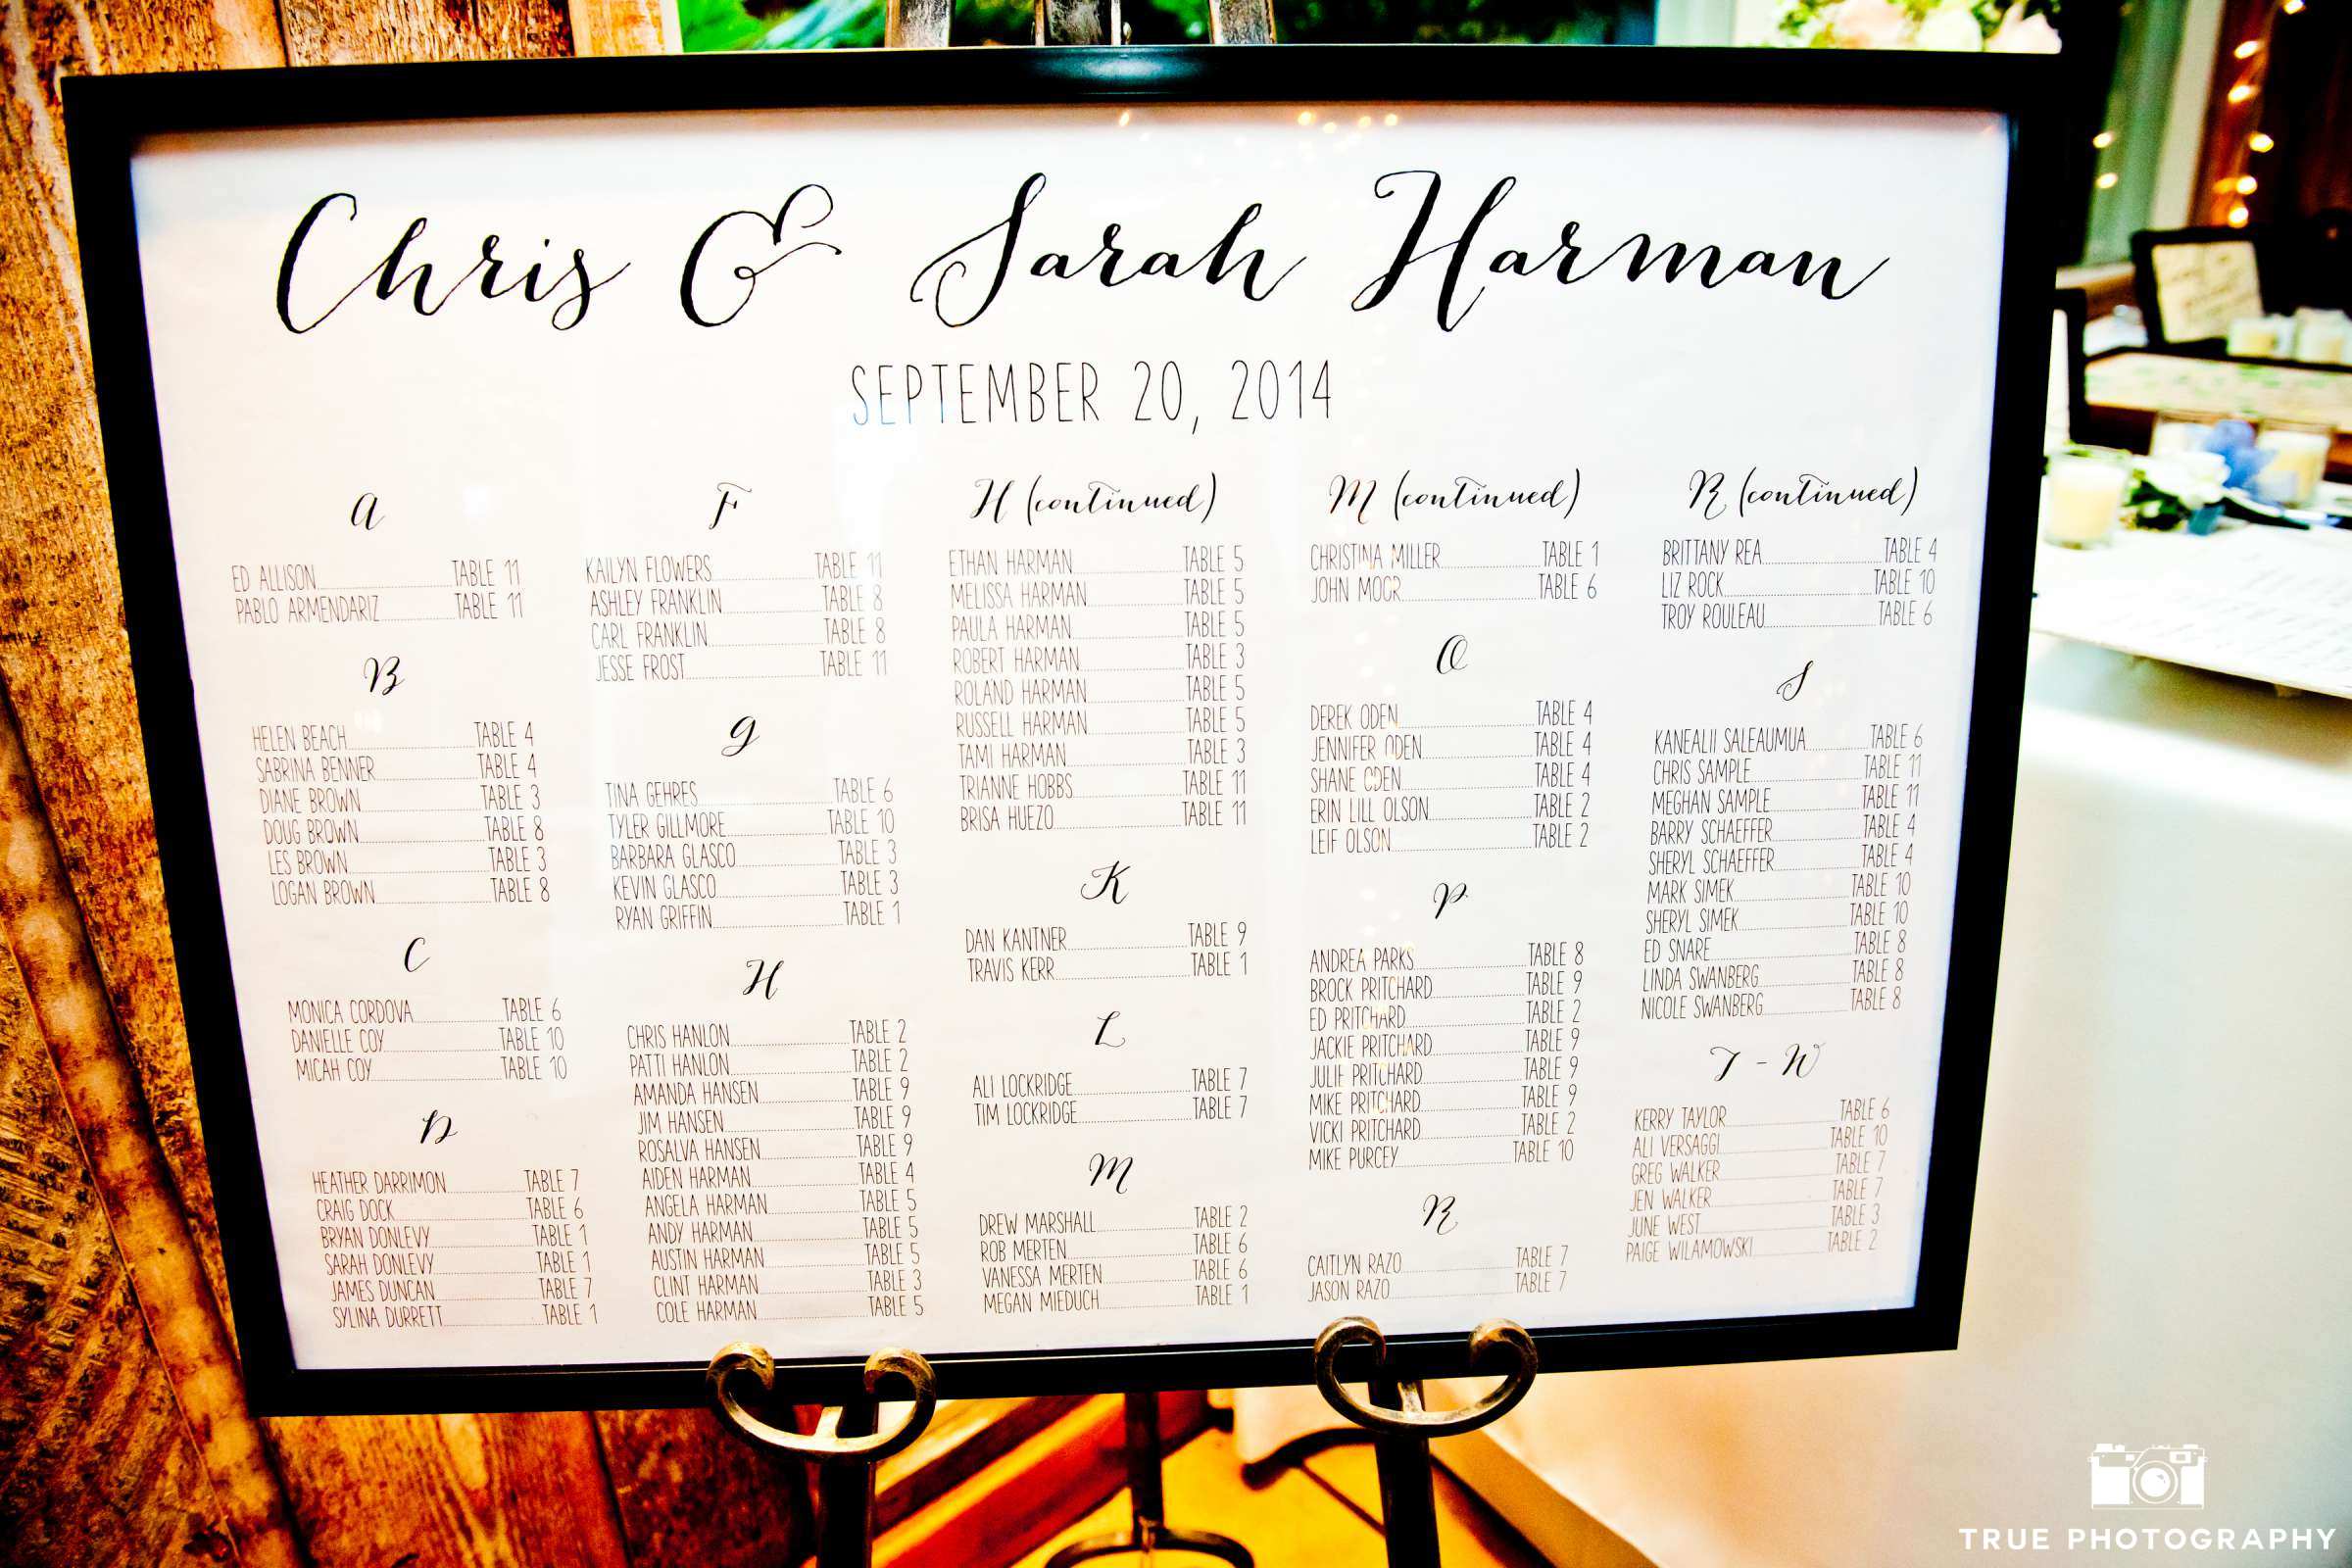 Chris & Sarah Harman
SEPTEMBER 20, 2014
A
ED ALLISON TABLE 11
PABLO ARMENDARIZ TABLE 11
B
HELEN BEACH TABLE 4
SABRINA BENNER TABLE 4
DIANE BROWN TABLE 3
DOUG BROWN TABLE 8
LES BROWN TABLE 3
LOGAN BROWN TABLE 8
C
MONICA CORDOVA TABLE 6
DANIELLE COY TABLE 10
MICAH COY TABLE 10
D
HEATHER DARRIMON TABLE 7
CRAIG DOCK TABLE 6
BRYAN DONLEVY TABLE 1
SARAH DONLEVY TABLE 1
JAMES DUNCAN TABLE 7
SYLINA DURRETT TABLE 1
F
KAILYN FLOWERS TABLE 11
ASHLEY FRANKLIN TABLE 8
CARL FRANKLIN TABLE 8
JESSE FROST TABLE 11
G
TINA GEHRES TABLE 6
TYLER GILLMORE TABLE 10
BARBARA GLASCO TABLE 3
KEVIN GLASCO TABLE 3
RYAN GRIFFIN TABLE 1
H
CHRIS HANLON TABLE 2
PATTI HANLON TABLE 2
AMANDA HANSEN TABLE 9
JIM HANSEN TABLE 9
ROSALVA HANSEN TABLE 9
AIDEN HARMAN TABLE 4
ANGELA HARMAN TABLE 5
ANDY HARMAN TABLE 5
AUSTIN HARMAN TABLE 5
CLINT HARMAN TABLE 3
COLE HARMAN TABLE 5
H (continued)
ETHAN HARMAN TABLE 5
MELISSA HARMAN TABLE 5
PAULA HARMAN TABLE 5
ROBERT HARMAN TABLE 3
ROLAND HARMAN TABLE 5
RUSSELL HARMAN TABLE 5
TAMI HARMAN TABLE 3
TRIANNE HOBBS TABLE 11
BRISA HUEZO TABLE 11
K
DAN KANTNER TABLE 9
TRAVIS KERR TABLE 1
L
ALI LOCKRIDGE TABLE 7
TIM LOCKRIDGE TABLE 7
M
DREW MARSHALL TABLE 2
ROB MERTEN TABLE 6
VANESSA MERTEN TABLE 6
MEGAN MIEDUCH TABLE 1
M (continued)
CHRISTINA MILLER TABLE 1
JOHN TABLE 6
O
DEREK ODEN TABLE 4
JENNIFER ODEN TABLE 4
SHANE ODEN TABLE 4
ERIN LILL OLSON TABLE 2
LEIF OLSON TABLE 2
P
ANDREA PARKS TABLE 8
BROCK PRITCHARD TABLE 9
ED PRITCHARD TABLE 2
JACKIE PRITCHARD TABLE 9
JULIE PRITCHARD TABLE 9
MIKE PRITCHARD TABLE 9
VICKI PRITCHARD TABLE 2
MIKE PURCEY TABLE 10
R
CAITLYN RAZO TABLE 7
JASON RAZO TABLE 7
R (continued)
BRITTANY REA TABLE 4
LIZ ROCK TABLE 10
TROY ROULEAU TABLE 6
S
KANEALII SALEAUMUA TABLE 6
CHRIS SAMPLE TABLE 11
MEGHAN SAMPLE TABLE 11
BARRY SCHAEFFER TABLE 4
SHERYL SCHAEFFER TABLE 4
MARK SIMEK TABLE 10
SHERYL SIMEK TABLE 10
ED SNARE TABLE 8
LINDA SWANBERG TABLE 8
NICOLE SWANBERG TABLE 8
T - W
KERRY TAYLOR TABLE 6
ALI VERSAGGI TABLE 10
GREG WALKER TABLE 7
JEN WALKER TABLE 7
JUNE WEST TABLE 3
PAIGE WILAMOWSKI TABLE 2
TRUE PHOTOGRAPHY